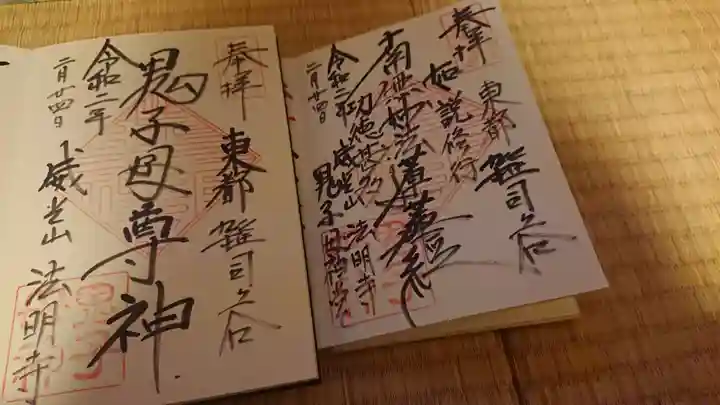 奉拝
如説修行
東都 雑司ヶ谷
南無妙法蓮華経
功徳甚多
威光山 法明寺
鬼子母神堂
令和二年
二月廿四日
奉拝
東都 雑司ヶ谷
鬼子母尊神
令和二年
二月廿四日
威光山 法明寺